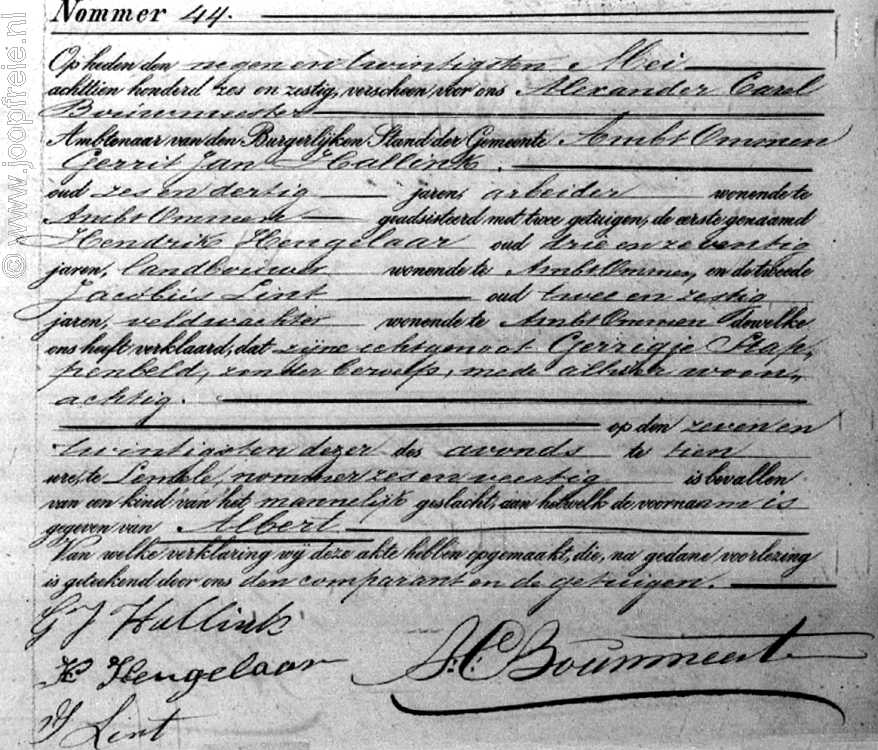 Nommer 44.
Op heden den negen en twintigsten Mei
achttien honderd zes en zestig, verscheen voor ons Alexander Carel
Bouwmeester
Ambtenaar van den Burgerlijken Stand der Gemeente Ambt Ommen
Gerrit Jan Hallink.
oud zes en dertig jaren, arbeider wonende te
Ambt Ommen geadsisteerd met twee getuigen, de eerste genaamd
Hendrik Hengelaar oud drie en zeventig
jaren, landbouwer wonende te Ambt Ommen, en de tweede
Jacobus Lint oud twee en zestig
jaren, veldwachter wonende te Ambt Ommen dewelke
ons heeft verklaard, dat zijne echtgenoot Gerrigje Stap„
penbeld, zonder beroep, mede alhier woon„
achtig.
op den zeven en
twintigsten dezer des avonds te tien
ure, te Lemele, nommer zes en veertig is bevallen
van een kind van het mannelijk geslacht, aan hetwelk de voornaam is
gegeven van Albert
Van welke verklaring wij deze akte hebben opgemaakt, die, na gedane voorlezing
is geteekend door ons den comparant en de getuigen.
G J Hallink
H Hengelaar
A. C. Bouwmeest
J Lint
© www.joopfreie.nl